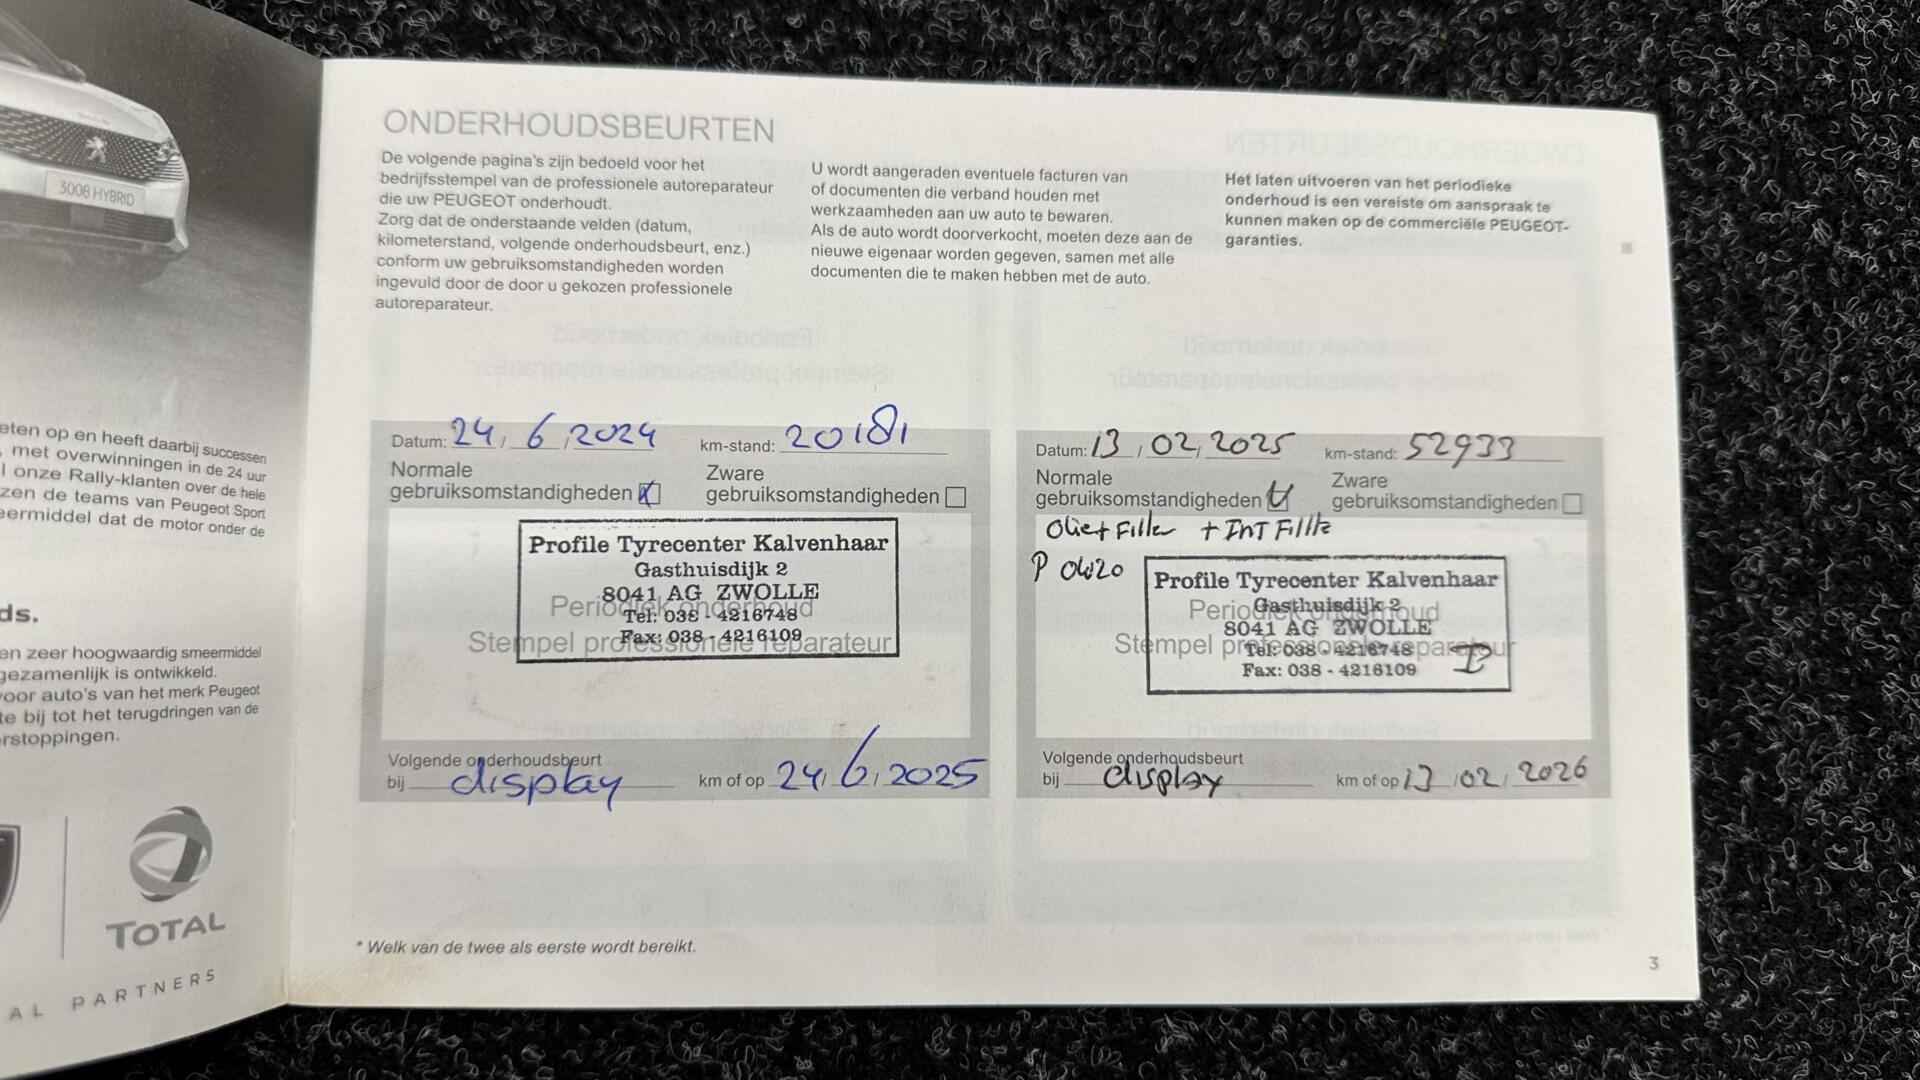 3008 HYBRID
eten op en heeft daarbij successen
met overwinningen in de 24 uur
l onze Rally-klanten over de hele
zen de teams van Peugeot Sport
eermiddel dat de motor onder de
ds.
en zeer hoogwaardig smeermiddel
gezamenlijk is ontwikkeld.
voor auto's van het merk Peugeot
te bij tot het terugdringen van de
rstoppingen.
TOTAL
AL PARTNERS
ONDERHOUDSBEURTEN
De volgende pagina's zijn bedoeld voor het
bedrijfsstempel van de professionele autoreparateur
die uw PEUGEOT onderhoudt.
Zorg dat de onderstaande velden (datum,
kilometerstand, volgende onderhoudsbeurt, enz.)
conform uw gebruiksomstandigheden worden
ingevuld door de door u gekozen professionele
autoreparateur.
U wordt aangeraden eventuele facturen van
of documenten die verband houden met
werkzaamheden aan uw auto te bewaren.
Als de auto wordt doorverkocht, moeten deze aan de
nieuwe eigenaar worden gegeven, samen met alle
documenten die te maken hebben met de auto.
Het laten uitvoeren van het periodieke
onderhoud is een vereiste om aanspraak te
kunnen maken op de commerciële PEUGEOT-
garanties.
Datum: 24 / 6 / 2024 km-stand: 20181
Normale
gebruiksomstandigheden
Zware
gebruiksomstandigheden
Profile Tyrecenter Kalvenhaar
Gasthuisdijk 2
8041 AG ZWOLLE
Periodiek onderhoud
Tel: 038 - 4216748
Stempel professionele reparateur
Fax: 038 - 4216109
Volgende onderhoudsbeurt
bij display km of op 24 / 6 / 2025
Datum: 13 / 02 / 2025 km-stand: 52933
Normale
gebruiksomstandigheden
Zware
gebruiksomstandigheden
Olie+ + INT
P 0W20
Profile Tyrecenter Kalvenhaar
Gasthuisdijk 2
Periodiek onderhoud
8041 AG ZWOLLE
Stempel professionele reparateur
Tel: 038 - 4216748
Fax: 038 - 4216109
Volgende onderhoudsbeurt
bij display km of op 13 / 02 / 2026
* Welk van de twee als eerste wordt bereikt.
3